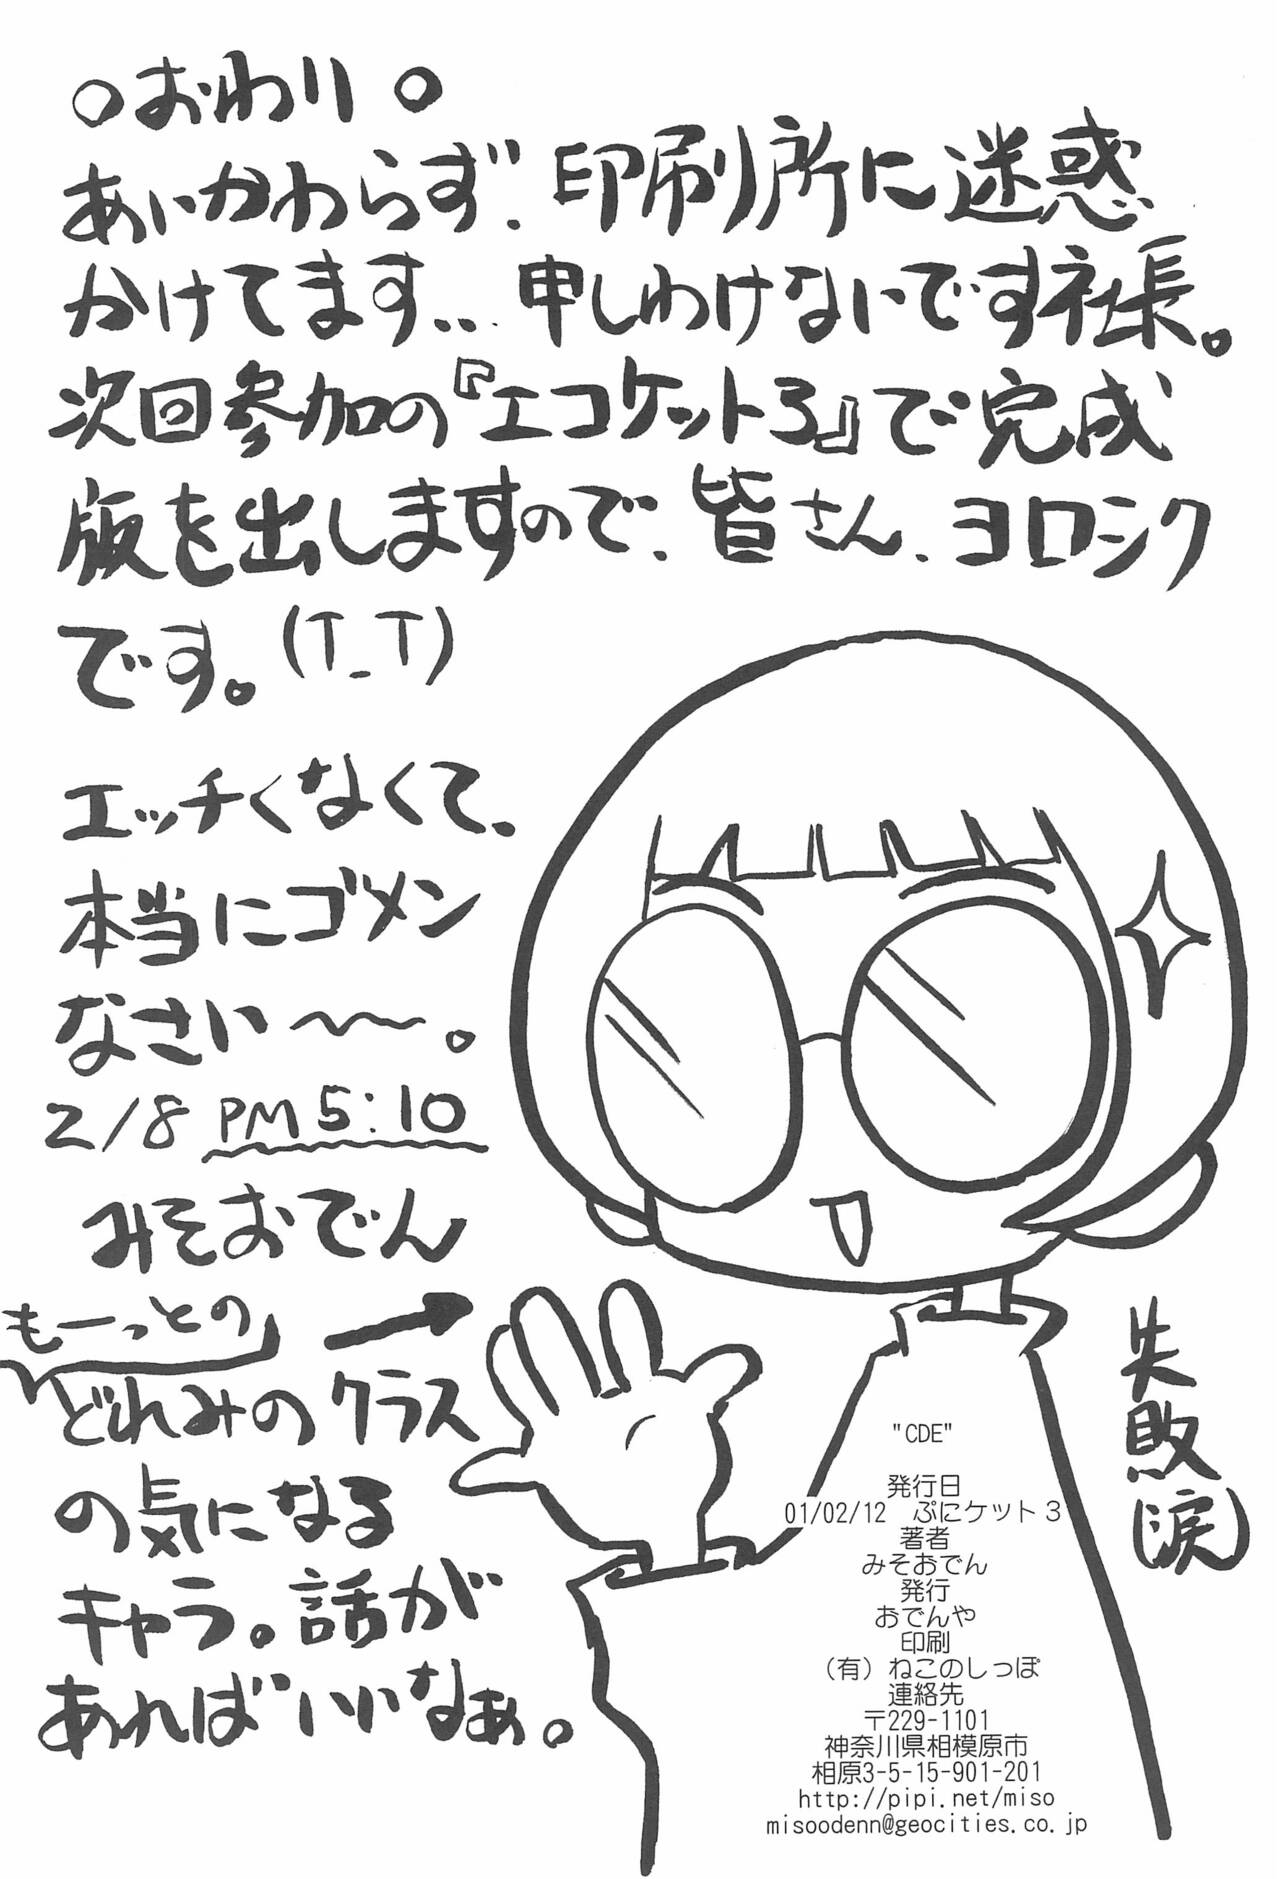 ○おわり○
あいかわらず、印刷所に迷惑
かけてます... 申しわけないです社長。
次回参加の『エコケット3』で完成
版を出しますので、皆さん、ヨロシク
です。(T_T)
エッチくなくて、
本当にゴメン
なさい〜〜。
2/8 PM5:10
みそおでん
もーっとの
どれみのクラス
の気になる
キャラ。話が
あればいいなぁ。
失敗(涙)
"CDE"
発行日
01/02/12 ぷにケット3
著者
みそおでん
発行
おでんや
印刷
(有)ねこのしっぽ
連絡先
〒229-1101
神奈川県相模原市
相原3-5-15-901-201
http://pipi.net/miso
misoodenn@geocities.co.jp